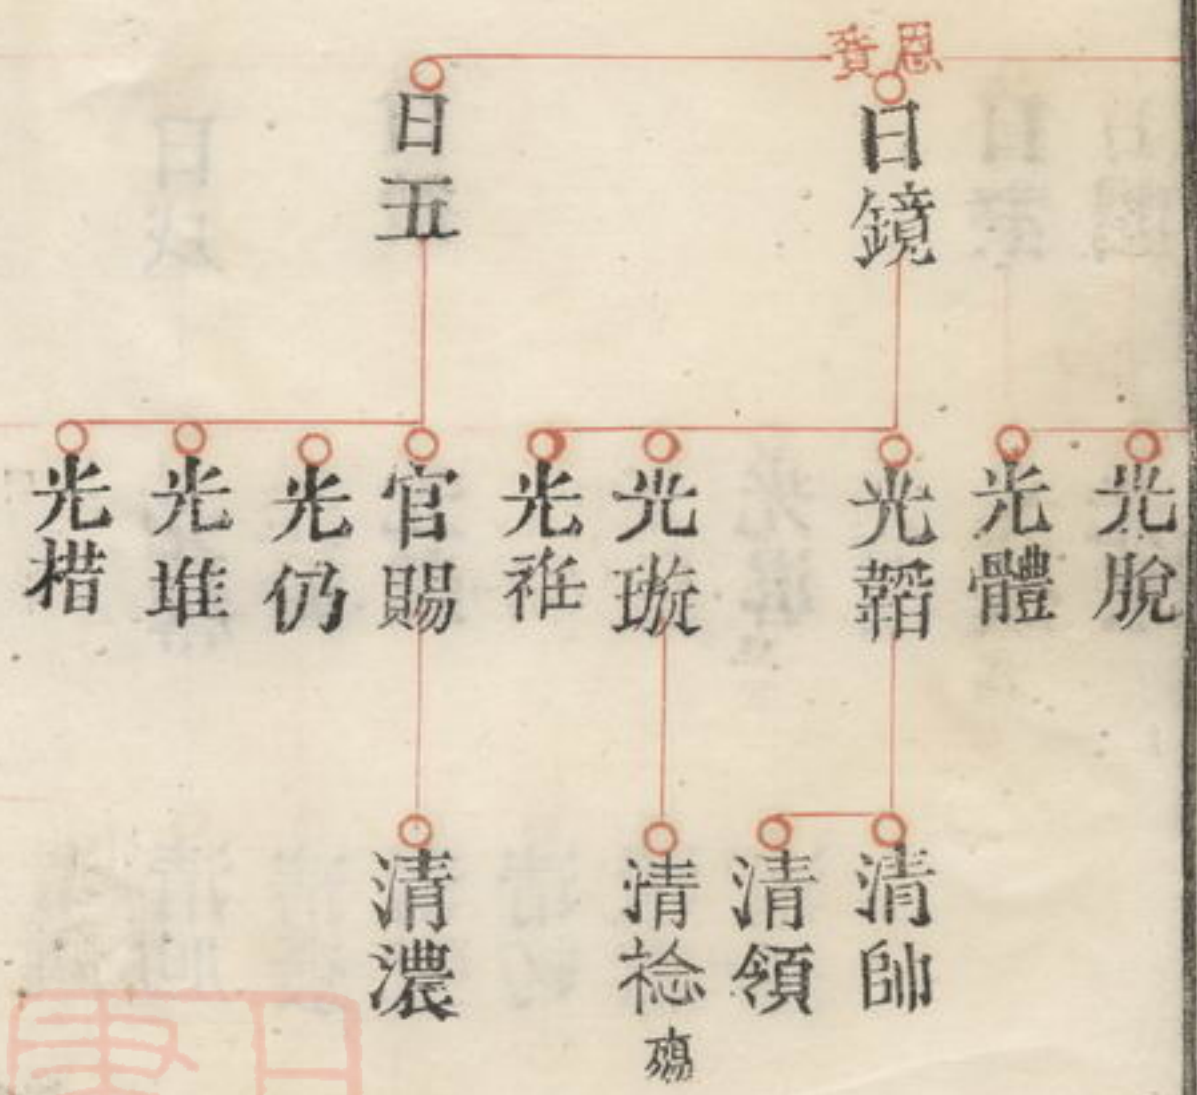 恩賚
日鏡
日五
光脫
光體
光韜
光璇
光祍
官賜
光仍
光堆
光楷
清帥
清領
清稔殤
清濃